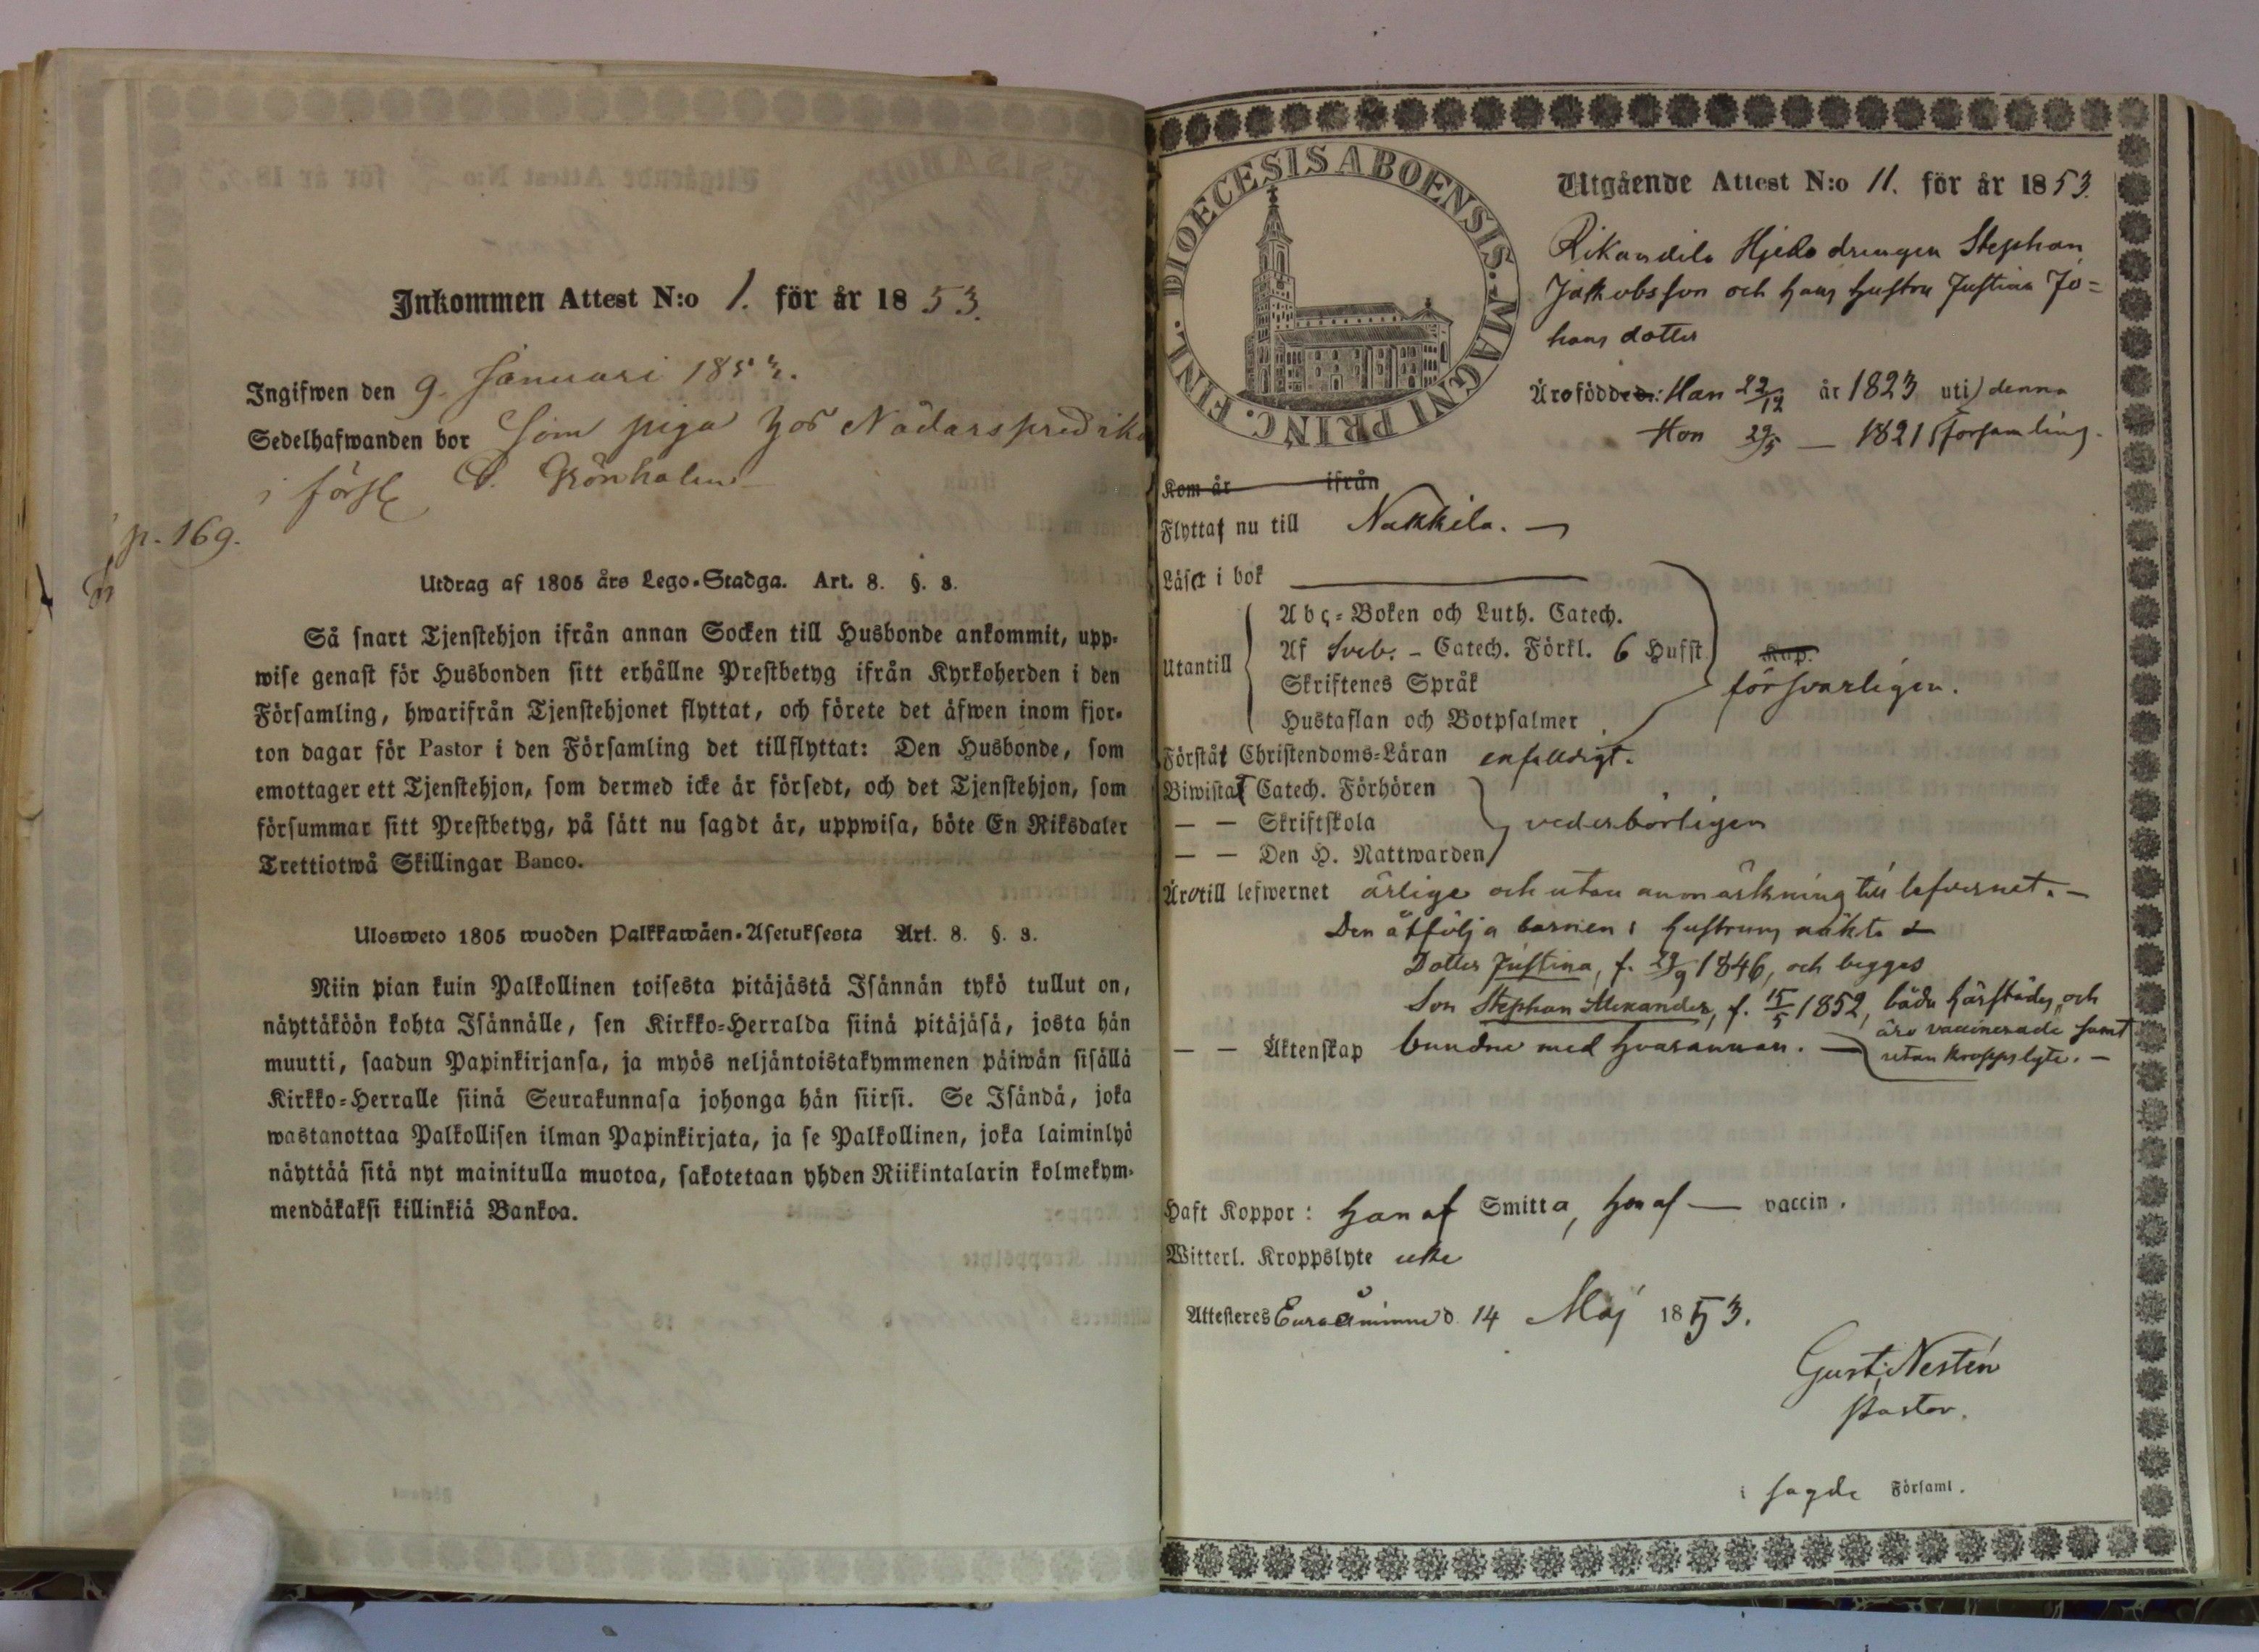 Inkommen Attest N:o 1. för år 1853.
Ingifwen den 9. Januari 1853.
Sedelhafwanden bor som piga hos Nådårspredik
i förs C. Grönholm
p. 169.
Utdrag af 1805 års Lego-Stadga. Art. 8. §. 8.
Så snart Tjenstehjon ifrån annan Socken till Husbonde ankommit, upp-
wise genast för Husbonden sitt erhållne Prestbetyg ifrån Kyrkoherden i den
Församling, hwarifrån Tjenstehjonet flyttat, och förete det äfwen inom fjor-
ton dagar för Pastor i den Församling det tillflyttat: Den Husbonde, som
emottager ett Tjenstehjon, som dermed icke är försedt, och det Tjenstehjon, som
försummar sitt Prestbetyg, på sätt nu sagdt är, uppwisa, böte En Riksdaler
Trettiotwå Skillingar Banco.
Ulosweto 1805 wuoden Palkkawäen-Asetuksesta Art. 8. §. 8.
Niin pian kuin Palkollinen toisesta pitäjästä Isännän tykö tullut on,
näyttäköön kohta Isännälle, sen Kirkko-Herralda siinä pitäjäsä, josta hän
muutti, saadun Papinkirjansa, ja myös neljäntoistakymmenen päiwän sisällä
Kirkko-Herralle siinä Seurakunnasa johonga hän siirsi. Se Isändä, joka
wastanottaa Palkollisen ilman Papinkirjata, ja se Palkollinen, joka laiminlyö
näyttää sitä nyt mainitulla muotoa, sakotetaan yhden Riikintalarin kolmekym-
mendäkaksi killinkiä Bankoa.
DIOECESIS ABOENSIS. MAGNI PRINC. FINL.
Utgående Attest N:o 11. för år 1853.
Rikandila Hjelodrengen Stephan
Jakobsson och hans hustru Justina Jo=
hans dotter
Äro födde: Han 22/12 år 1823 uti denna
Hon 29/5 — 1821 församling.
Kom år ifrån
Flyttat nu till Nakkila. —
Läset i bok
Utantill
Abç-Boken och Luth. Catech.
Af Sveb. - Catech. Förkl. 6 Hufst. Kap.
Skriftenes Språk försvarligen.
Hustaflan och Botpsalmer
Förstå Christendoms-Läran enfalldigt.
Biwistat Catech. Förhören
— — Skriftskola vederbörligen
— — Den H. Nattwarden
Äro till lefwernet ärlige och utan anmärkning till lefvernet. —
Den åtfölja barnen: hustruns oäkta
Dotter Justina, f. 29/9 1846, och begges
Son Stephan Alexander, f. 15/5 1852, båda härstädes, och
äro vaccinerade samt
— — Äktenskap bundne med hvarannan. — utan kroppslyte. —
Haft Koppor: han af Smitta, hon af — vaccin.
Witterl. Kroppslyte icke
Attesteres Euraåminne d. 14 Maj 1853.
Gust. Nestén
Pastor.
i sagde Församl.